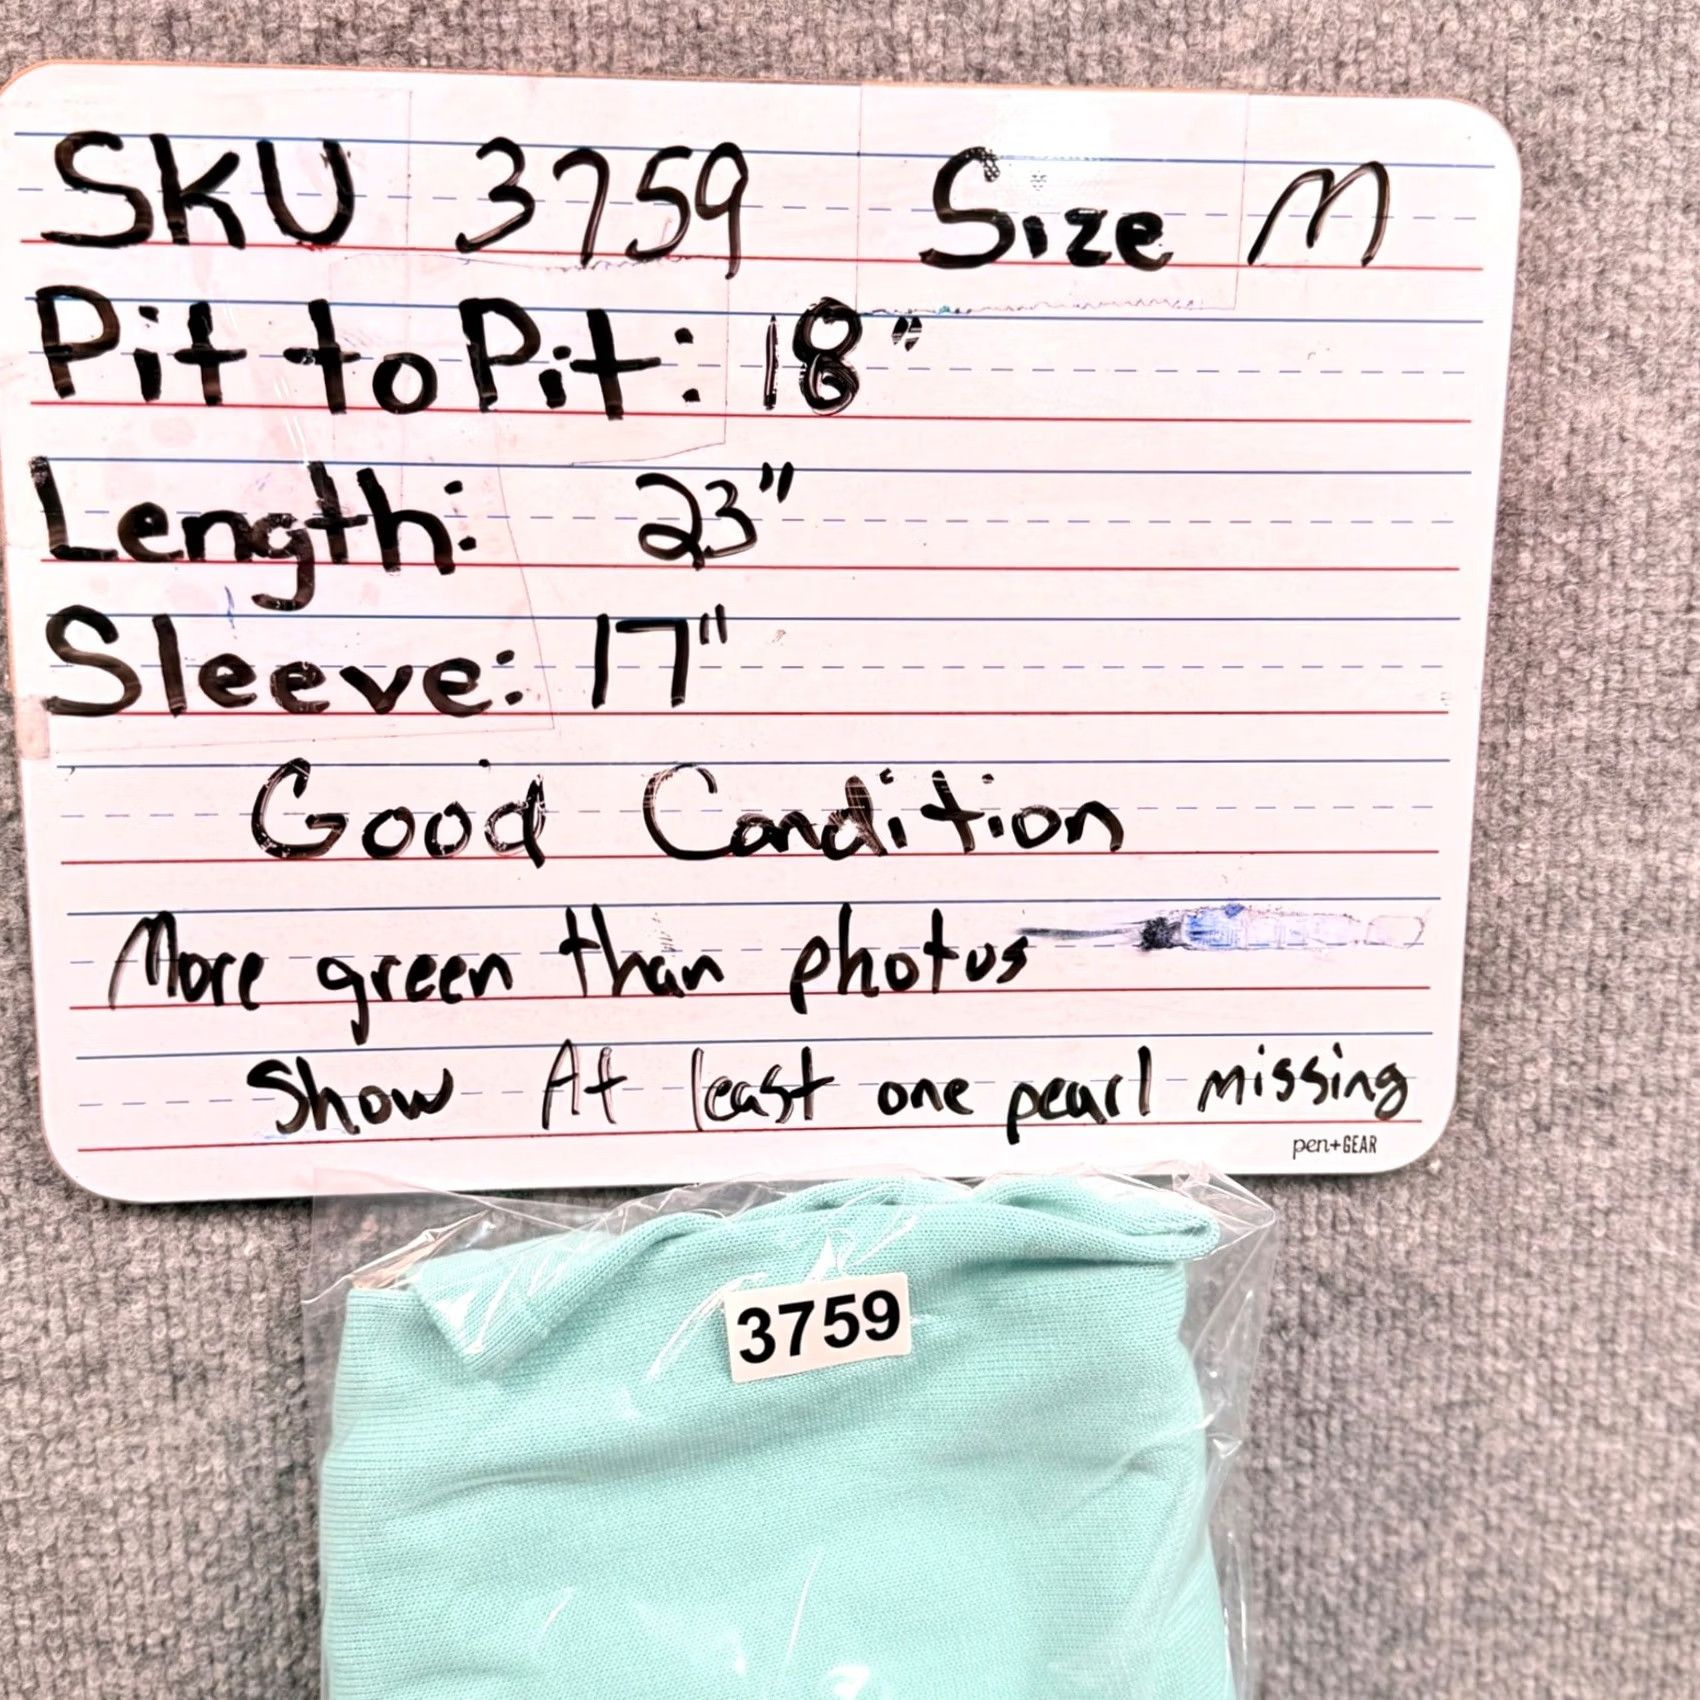 SKU 3759 Size M
Pit to Pit: 18"
Length: 23"
Sleeve: 17"
Good Condition
More green than photos
Show At least one pearl missing
pen+GEAR
3759